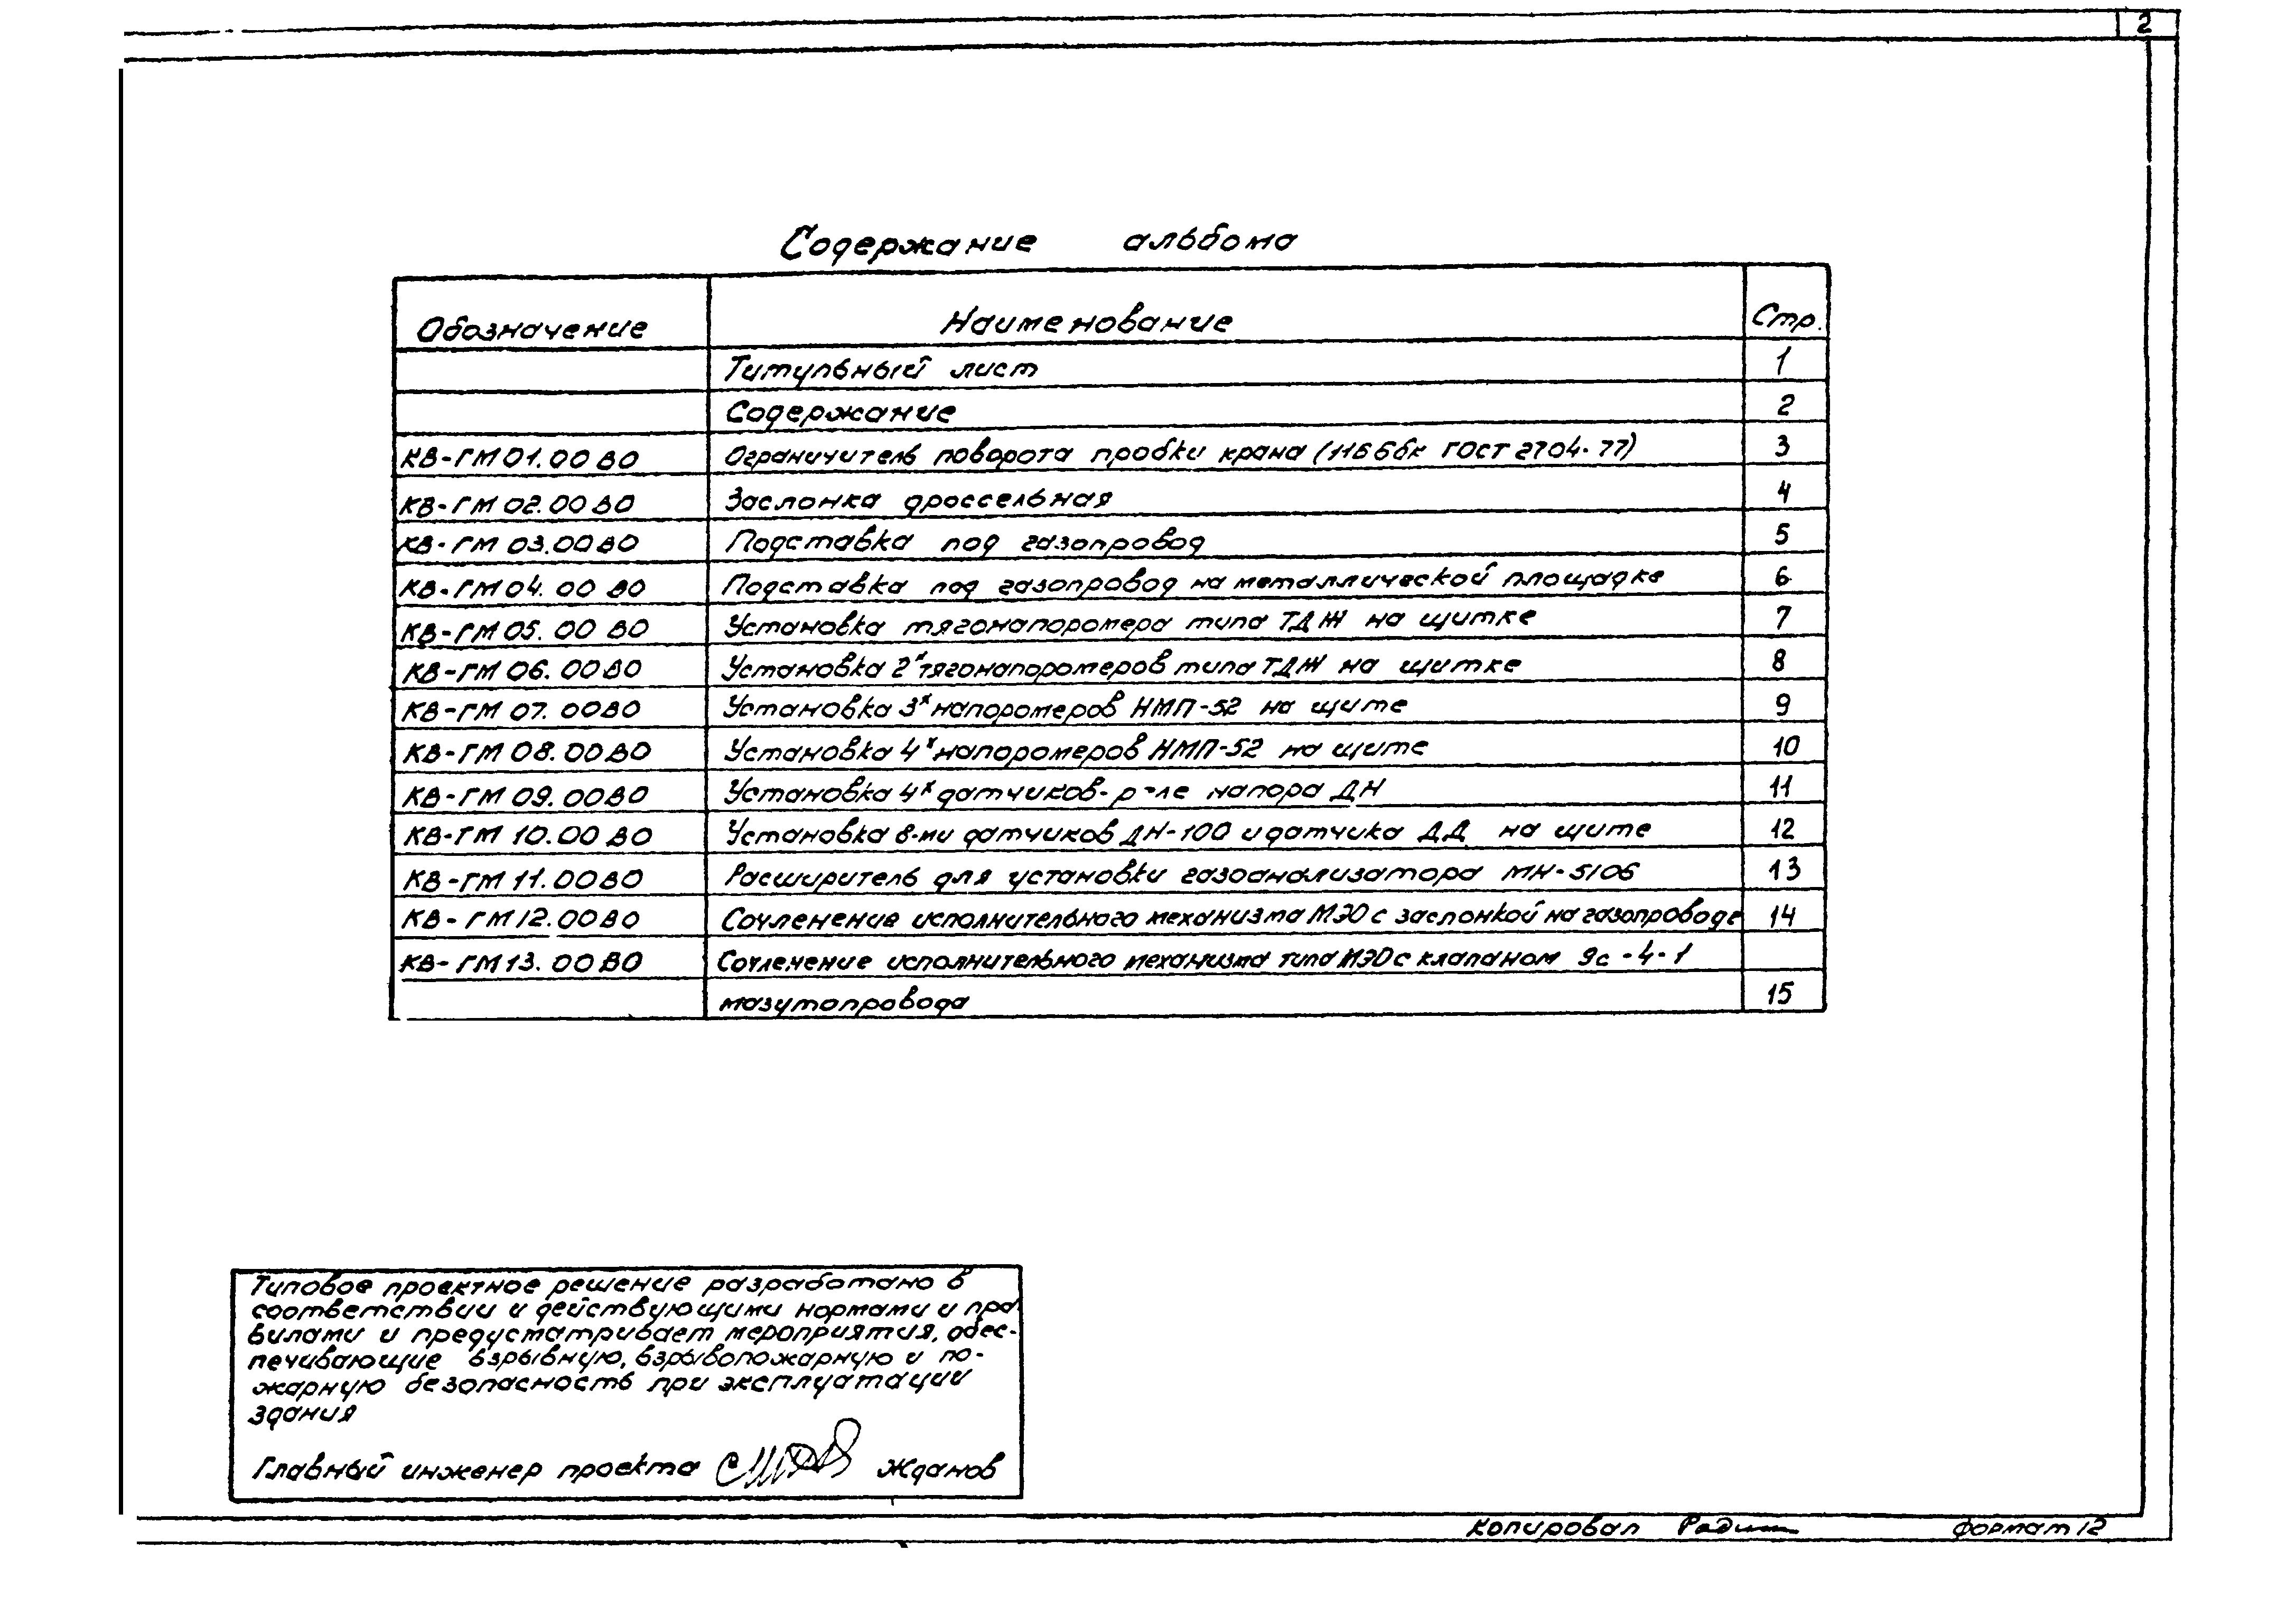 2
Содержание альбома
Обозначение Наименование Стр.
Титульный лист 1
Содержание 2
КВ-ГМ 01.00 ВО Ограничитель поворота пробки крана (11Б6бк ГОСТ 2704-77) 3
КВ-ГМ 02.00 ВО Заслонка дроссельная 4
КВ-ГМ 03.00 ВО Подставка под газопровод 5
КВ-ГМ 04.00 ВО Подставка под газопровод на металлической площадке 6
КВ-ГМ 05.00 ВО Установка тягонапоромера типа ТДЖ на щитке 7
КВ-ГМ 06.00 ВО Установка 2х тягонапоромеров типа ТДЖ на щитке 8
КВ-ГМ 07.00 ВО Установка 3х напоромеров НМП-52 на щите 9
КВ-ГМ 08.00 ВО Установка 4х напоромеров НМП-52 на щите 10
КВ-ГМ 09.00 ВО Установка 4х датчиков-р-ле напора ДН 11
КВ-ГМ 10.00 ВО Установка 8-ми датчиков ДН-100 и датчика ДД на щите 12
КВ-ГМ 11.00 ВО Расширитель для установки газоанализатора МН-5106 13
КВ-ГМ 12.00 ВО Сочленение исполнительного механизма МЭО с заслонкой на газопроводе 14
КВ-ГМ 13.00 ВО Сочленение исполнительного механизма типа МЭО с клапаном 9с-4-1
мазутопровода 15
Типовое проектное решение разработано в
соответствии и действующими нормами и пра
вилами и предусматривает мероприятия, обес-
печивающие взрывную, взрывопожарную и по-
жарную безопасность при эксплуатации
здания
Главный инженер проекта Жданов
Копировал формат 12